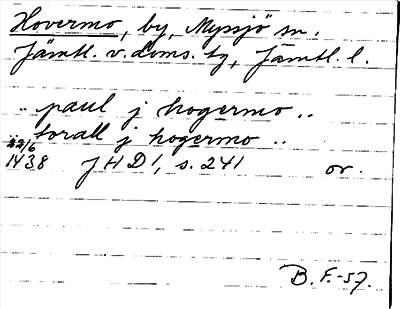 Hovermo, by, Myssjö sn,
Jämtl. v. doms. tg, Jämtl. l.
.. paul j hogermo ..
.. torall j hogermo ..
22/6
1438 JHD1, s. 241 or.
B. F.-57.